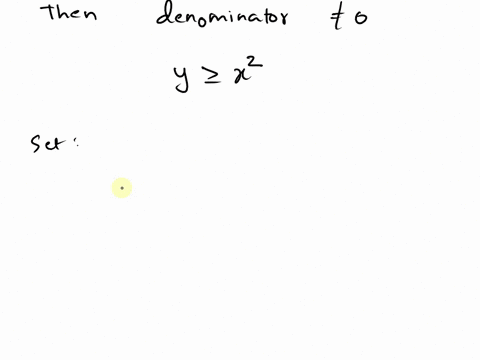 Then denominator ≠ 0
y ≥ x²
Set: